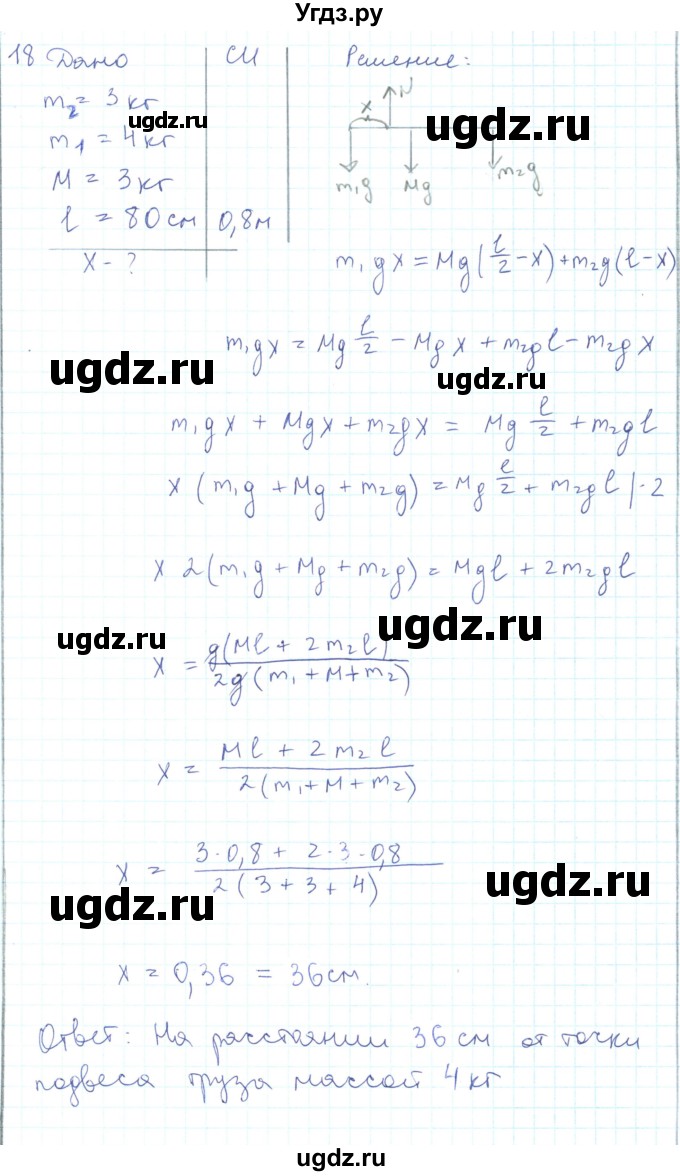 Угдз.ру
18 Дано СИ Решение:
m₂ = 3 кг
ugdz.ru
m₁ = 4 кг
M = 3 кг
l = 80 см 0,8 м
X - ?
N
x
ugdz.ru
m₁g Mg m₂g
m₁gx = Mg(l/2 - x) + m₂g(l - x)
m₁gx = Mg l/2 - Mgx + m₂gl - m₂gx
ugdz.ru ugdz.ru
m₁gx + Mgx + m₂gx = Mg l/2 + m₂gl
x (m₁g + Mg + m₂g) = Mg l/2 + m₂gl |·2
ugdz.ru ugdz.ru
x 2(m₁g + Mg + m₂g) = Mgl + 2m₂gl
ugdz.ru ugdz.ru
x = g(Ml + 2m₂l) / 2g(m₁ + M + m₂)
x = Ml + 2m₂l / 2(m₁ + M + m₂)
x = 3·0,8 + 2·3·0,8 / 2(3 + 3 + 4)
ugdz.ru ugdz.ru
x = 0,36 = 36 см.
Ответ: На расстоянии 36 см от точки
подвеса груза массой 4 кг
ugdz.ru ugdz.ru
ugdz.ru